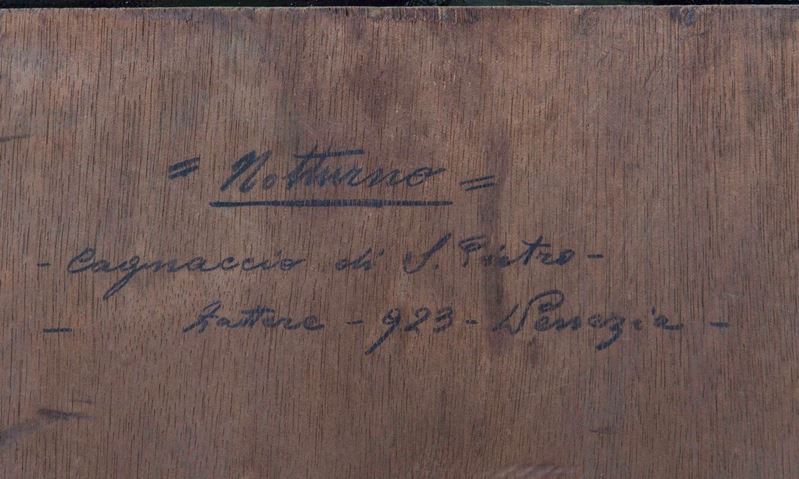 = Notturno =
- Cagnaccio di S. Pietro -
- Zattere - 923 - Venezia -